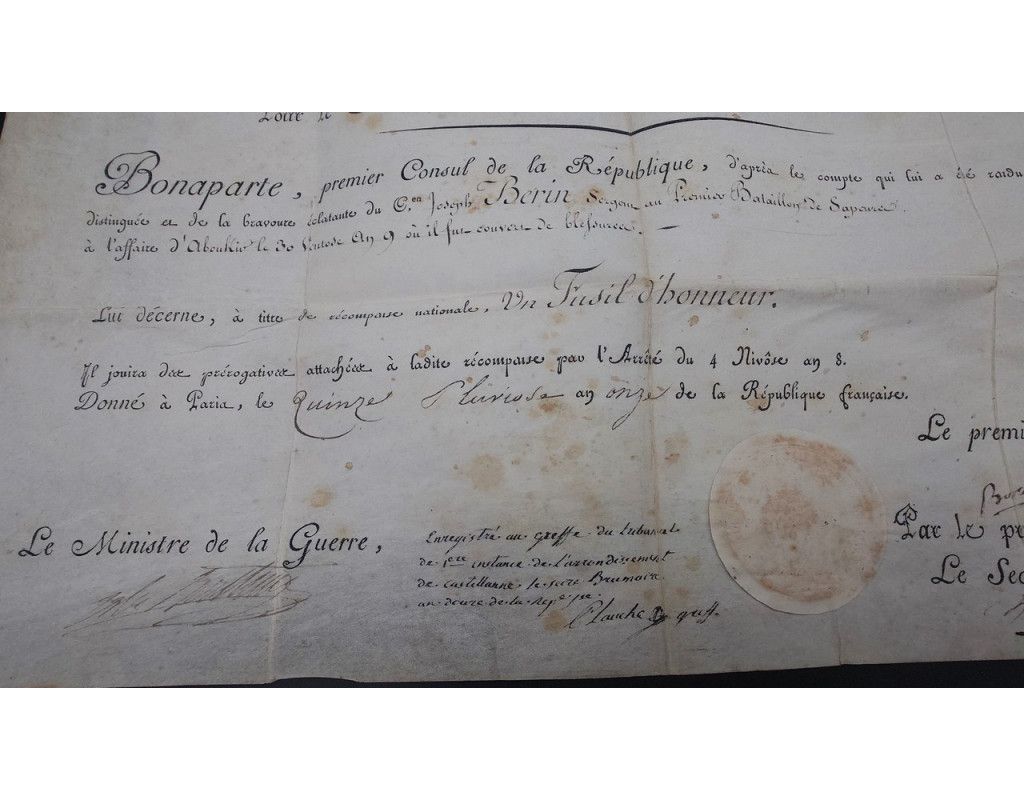 Bonaparte, premier Consul de la République, d'après le compte qui lui a été rendu
distinguée et de la bravoure éclatante du C.en Joseph Berin Sergent au Premier Bataillon de Sapeurs.
à l'affaire d'Aboukir le 30 Ventose An 9 où il fut couvert de blessures.
Lui décerne, à titre de récompense nationale, Un Fusil d'honneur.
Il jouira des prérogatives attachées à ladite récompense par l'Arrêté du 4 Nivôse an 8.
Donné à Paris, le Quinze Pluviose an onze de la République française.
Le premi
Le Ministre de la Guerre,
Enregistré au greffe du tribunal
de 1ere instance de l'arrondissement
de Castellanne le seize Brumaire
an douze de la Rep.
Par le pr
Le Sec